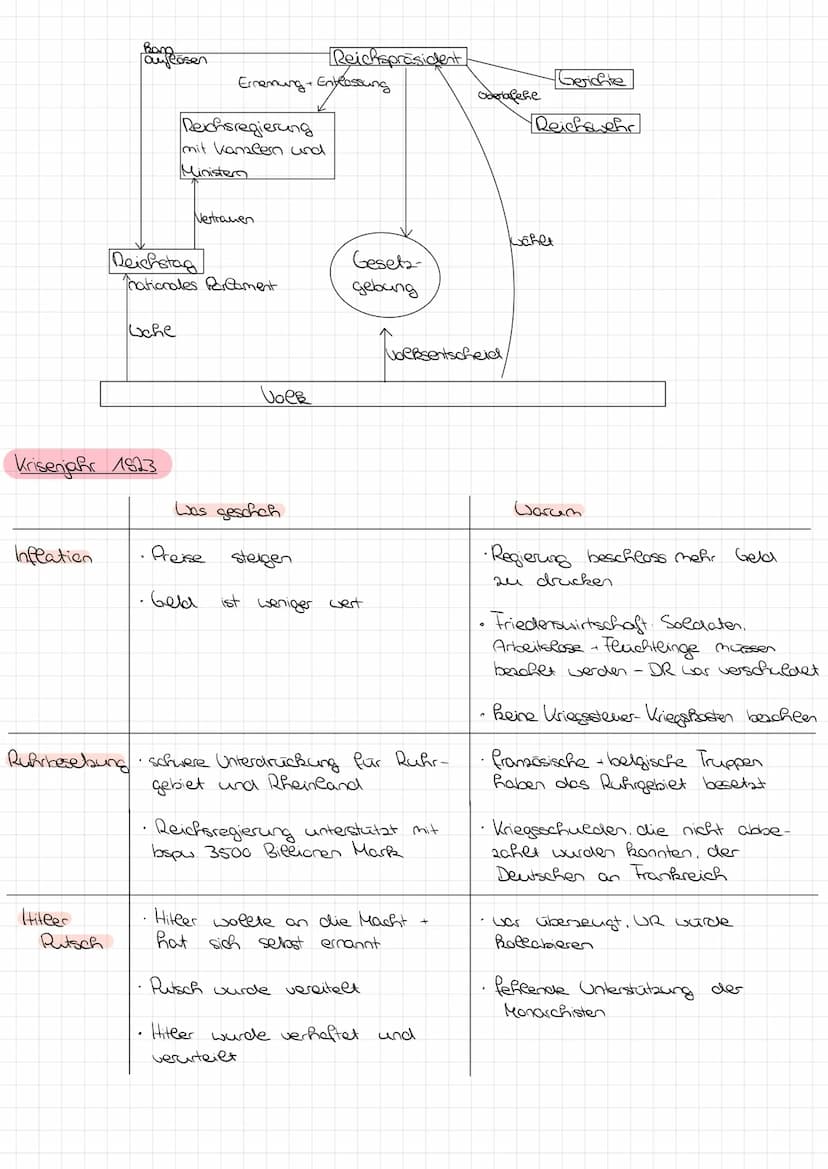 Kann
auflösen
Reichspräsident
Ernennung + Entlassung
Gerichte
Oberbefehl
Reichswehr
Reichsregierung
mit Kanzlern und
Ministern
Vertrauen
wählt
Reichstag
nationales Parlament
Gesetz-
gebung
Wahl
Volksentscheid
Volk
Krisenjahr 1923
Was geschah
Warum
Inflation
· Preise steigen
· Geld ist weniger wert
· Regierung beschloss mehr Geld
zu drucken
· Friedenswirtschaft. Soldaten,
Arbeitslose + Flüchtlinge müssen
bezahlt werden - DR war verschuldet
· keine Kriegssteuer - Kriegskosten bezahlen
Ruhrbesetzung
· schwere Unterdrückung für Ruhr-
gebiet und Rheinland
· Reichsregierung unterstützt mit
bspw. 3500 Billionen Mark
· französische + belgische Truppen
haben das Ruhrgebiet besetzt
· Kriegsschulden, die nicht abbe-
zahlt wurden konnten, der
Deutschen an Frankreich
Hitler
Putsch
· Hitler wollte an die Macht +
hat sich selbst ernannt
· Putsch wurde vereitelt
· Hitler wurde verhaftet und
verurteilt
· war überzeugt, WR würde
kollabieren
· fehlende Unterstützung der
Monarchisten